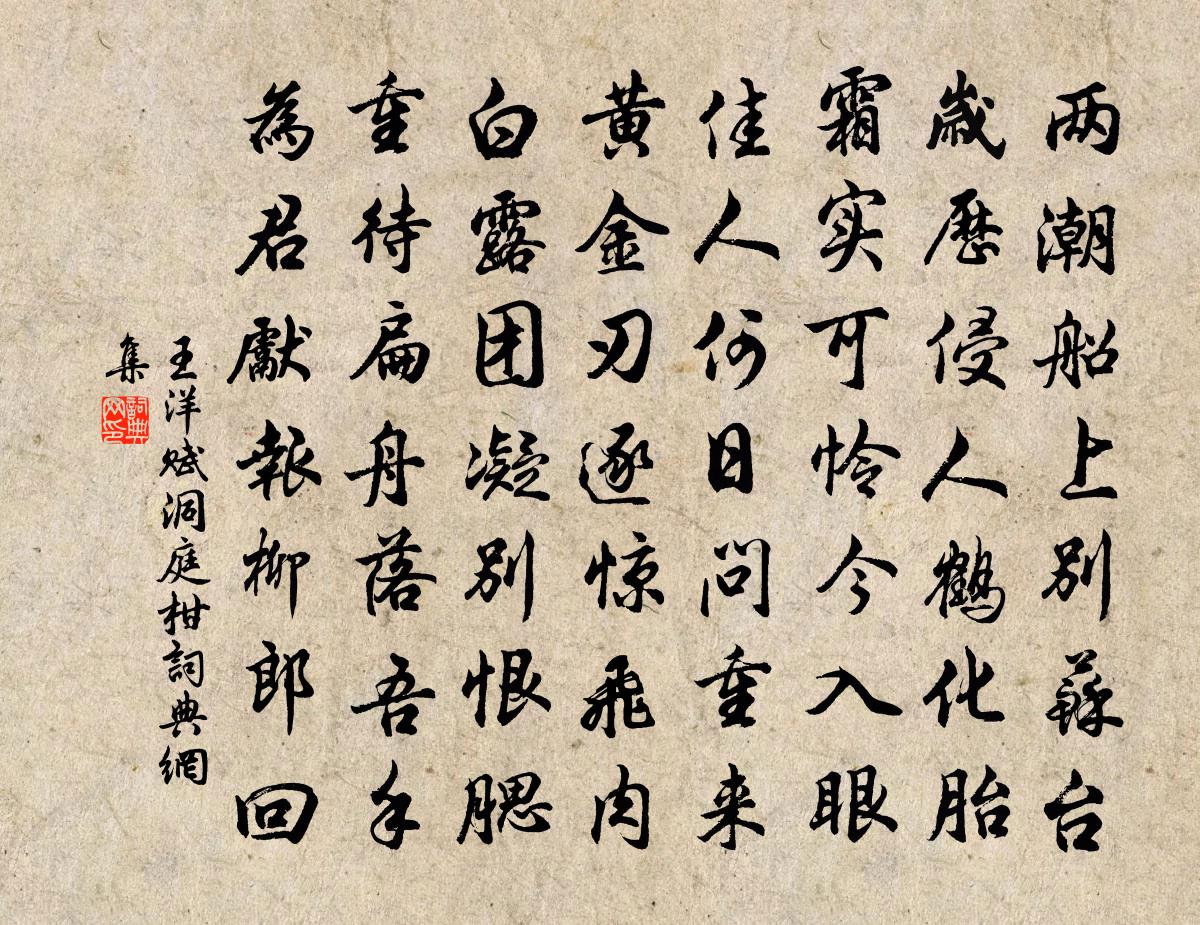 两潮船上别蘇台
嵗歷侵人鶴化胎
霜实可怜今入眼
佳人何日问重来
黄金刃逐惊飛肉
白露团凝别恨腮
重待扁舟落吾手
為君獻報柳郎回
王洋赋洞庭柑詞典網
集
詞典
网印